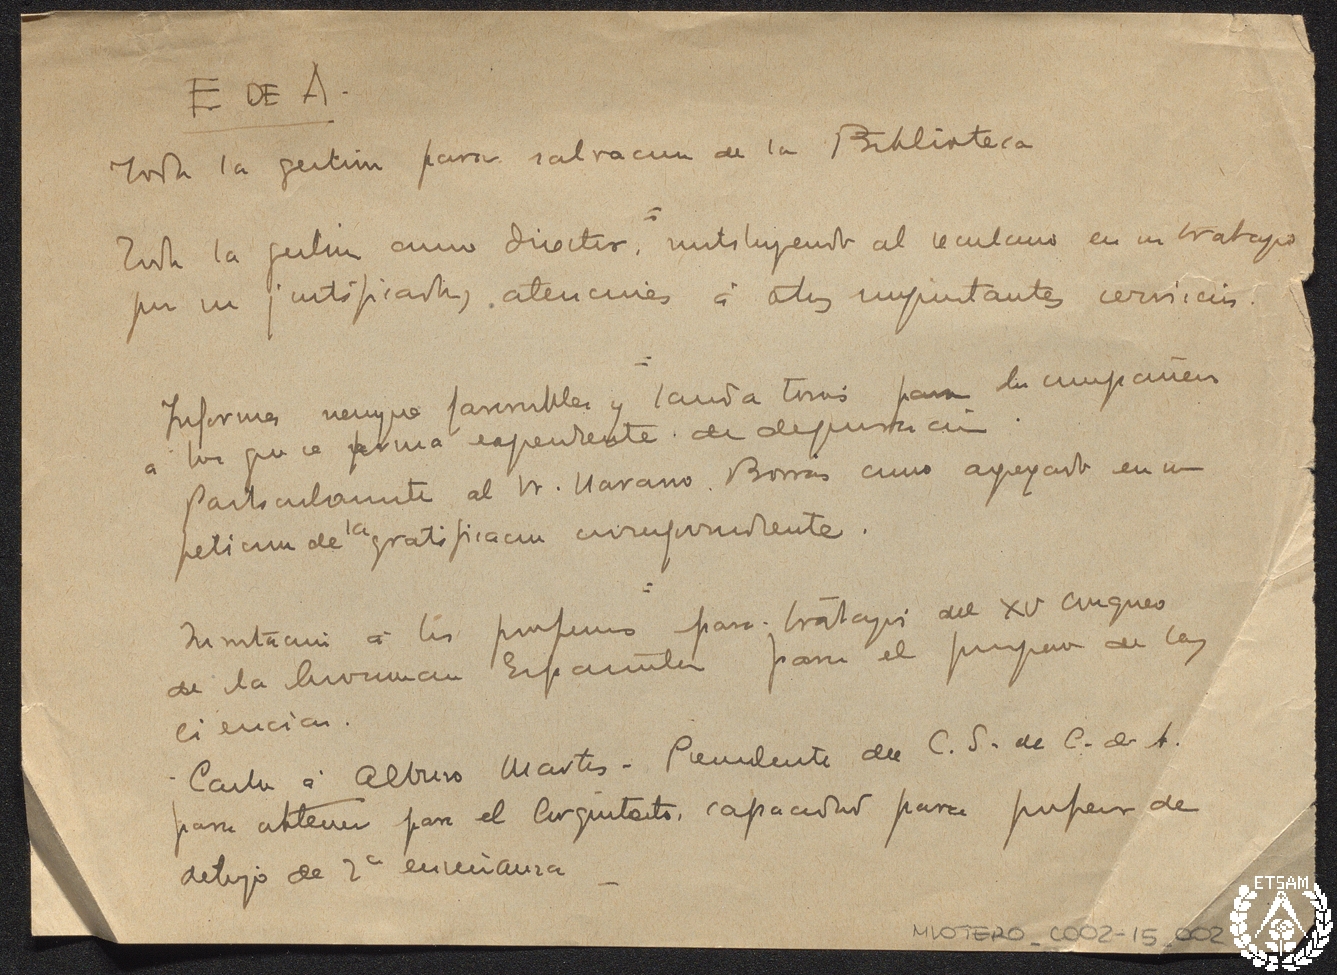 E DE A.
Toda la gestion para salvacion de la Biblioteca
Toda la gestion como Director, substituyendo al en un trabajo
por justificadas, atenciones á otros importantes servicios.
Informes siempre favorables y laudatorios para los compañeros
a los que se forma expediente de depuración.
Particularmente al Sr. Navarro Borrás como apoyado en su
peticion de la gratificacion correspondiente.
Invitacion á los profesores para trabajos del XV Congreso
de la Asociacion Española para el progreso de las
ciencias.
Carta á Alburo Martos - Presidente del C. S. de C. de A.
para obtener para el Arquitecto, capacidad para profesor de
dibujo de 2ª enseñanza
MLOTERO_C002-15_002
ETSAM